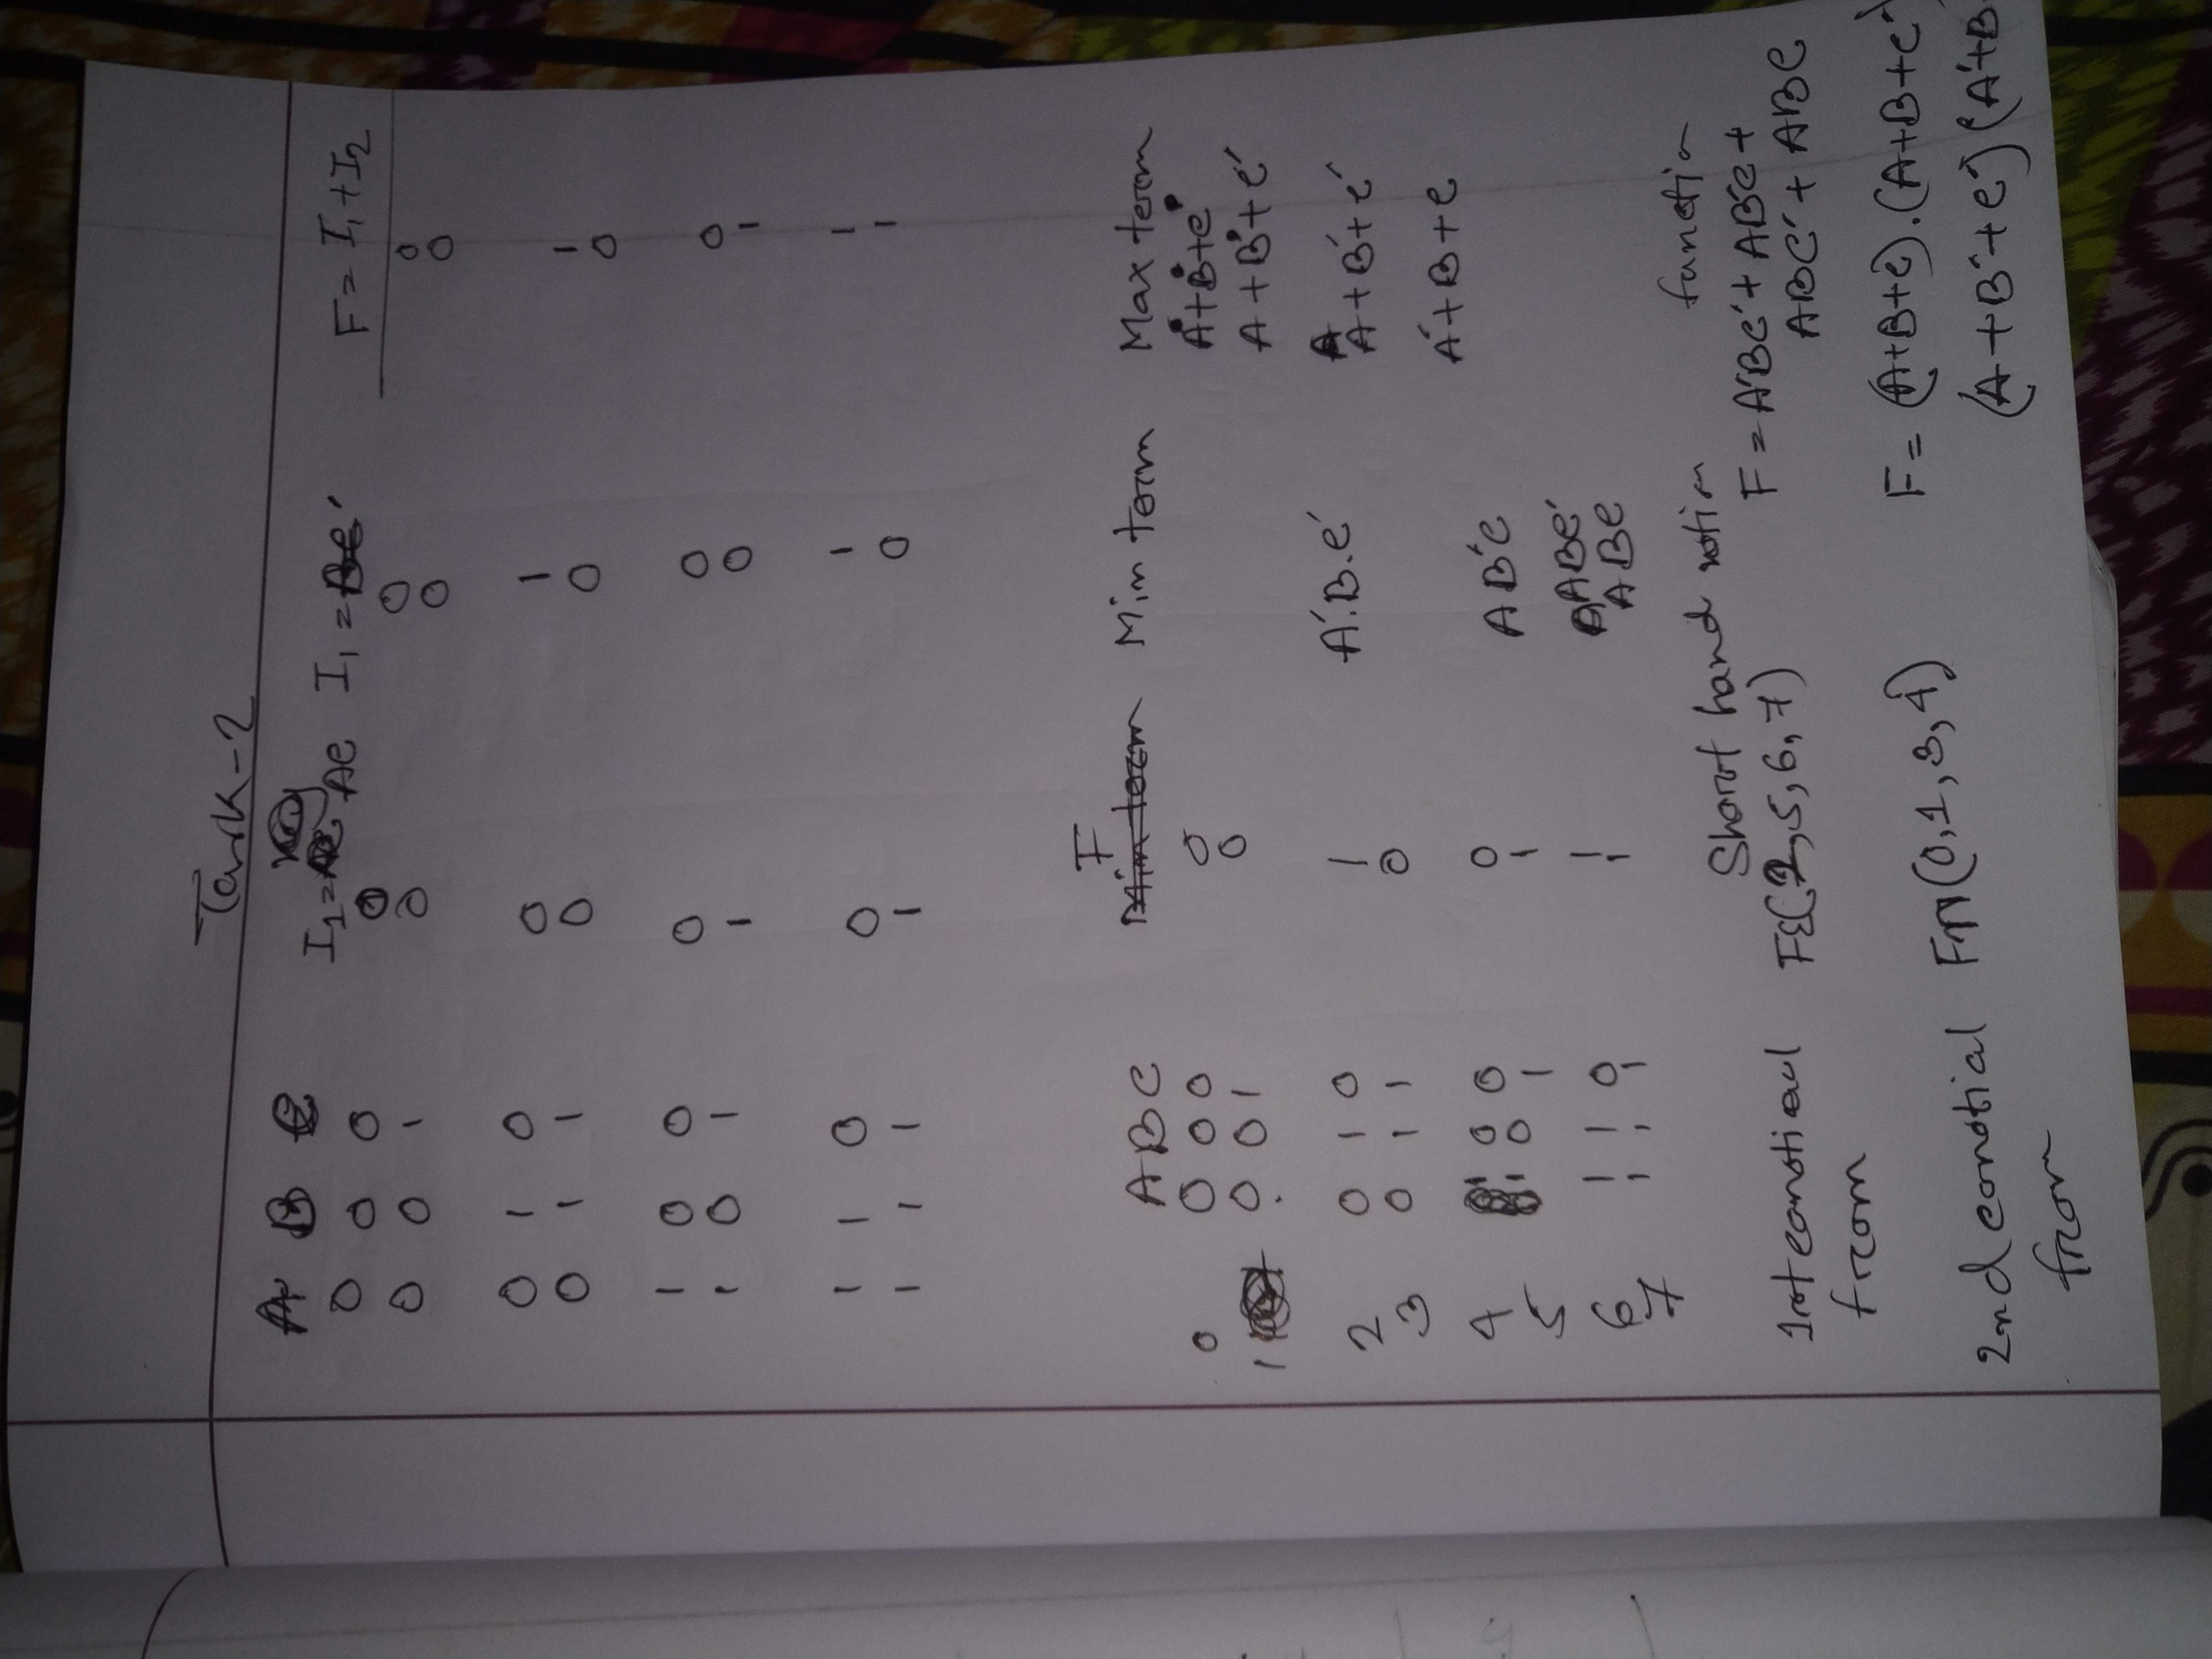 Task-2
A B C I2 = AC I1 = BC' F = I1 + I2
0 0 0 0 0 0
0 0 1 0 0 0
0 1 0 0 1 1
0 1 1 0 0 0
1 0 0 0 0 0
1 0 1 1 0 1
1 1 0 0 1 1
1 1 1 1 0 1
F
A B C Min term Min term Max term
0 0 0 0 0 A+B+C
1 0 0 1 0 A+B+C'
2 0 1 0 1 A'.B.C'
3 0 1 1 0 A+B'+C'
4 1 0 0 0 A'+B+C
5 1 0 1 1 AB'C
6 1 1 0 1 ABC'
7 1 1 1 1 ABC
Short hand function
1st F Σ(2,5,6,7) F = A'BC' + AB'C +
from ABC' + ABC
2nd conotial Fπ(0,1,3,4) F = (A+B+C).(A+B+C')
from (A+B'+C')(A'+B